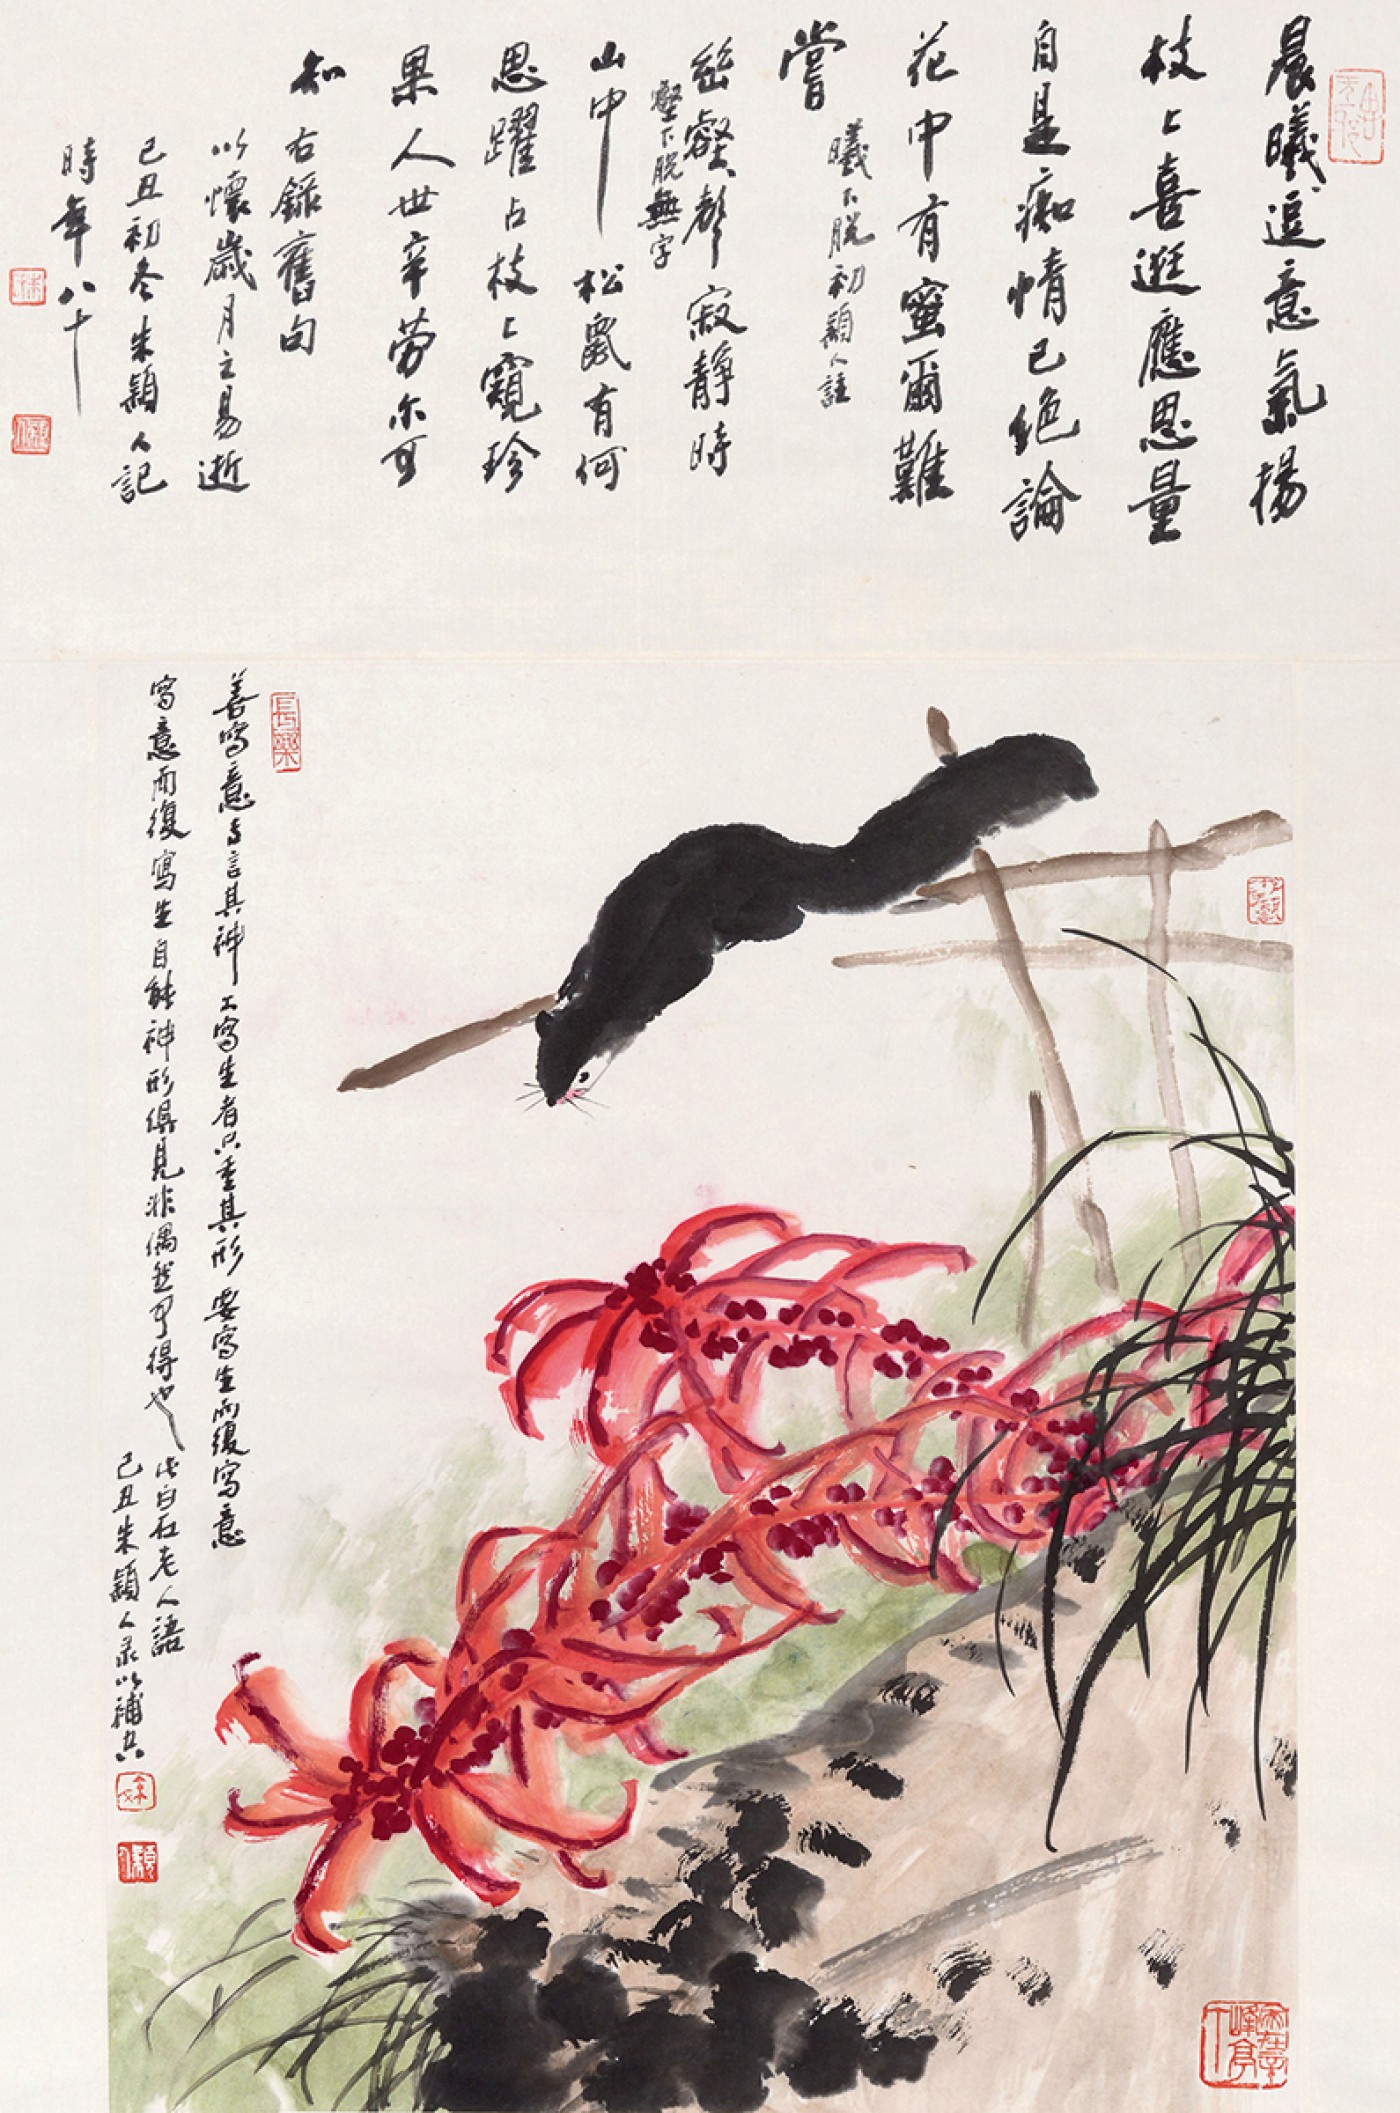 晨曦逗意氣揚
枝上喜逛應思量
自是痴情已絕論
花中有蜜爾難
嘗
曦下脫初 穎人註
豁壑聲寂靜時
壑下脫無字
山中松鼠有何
思躍占枝上窺珍
果人世辛勞尔可
知
右錄舊句
以懷歲月之易逝
己丑初冬朱穎人記
時年八十
善寫意者言其神工寫生者只重其形要寫生而復寫意
寫意而復寫生自能神形俱見非偶然可得也
此白石老人語
己丑朱穎人录以補空
長樂